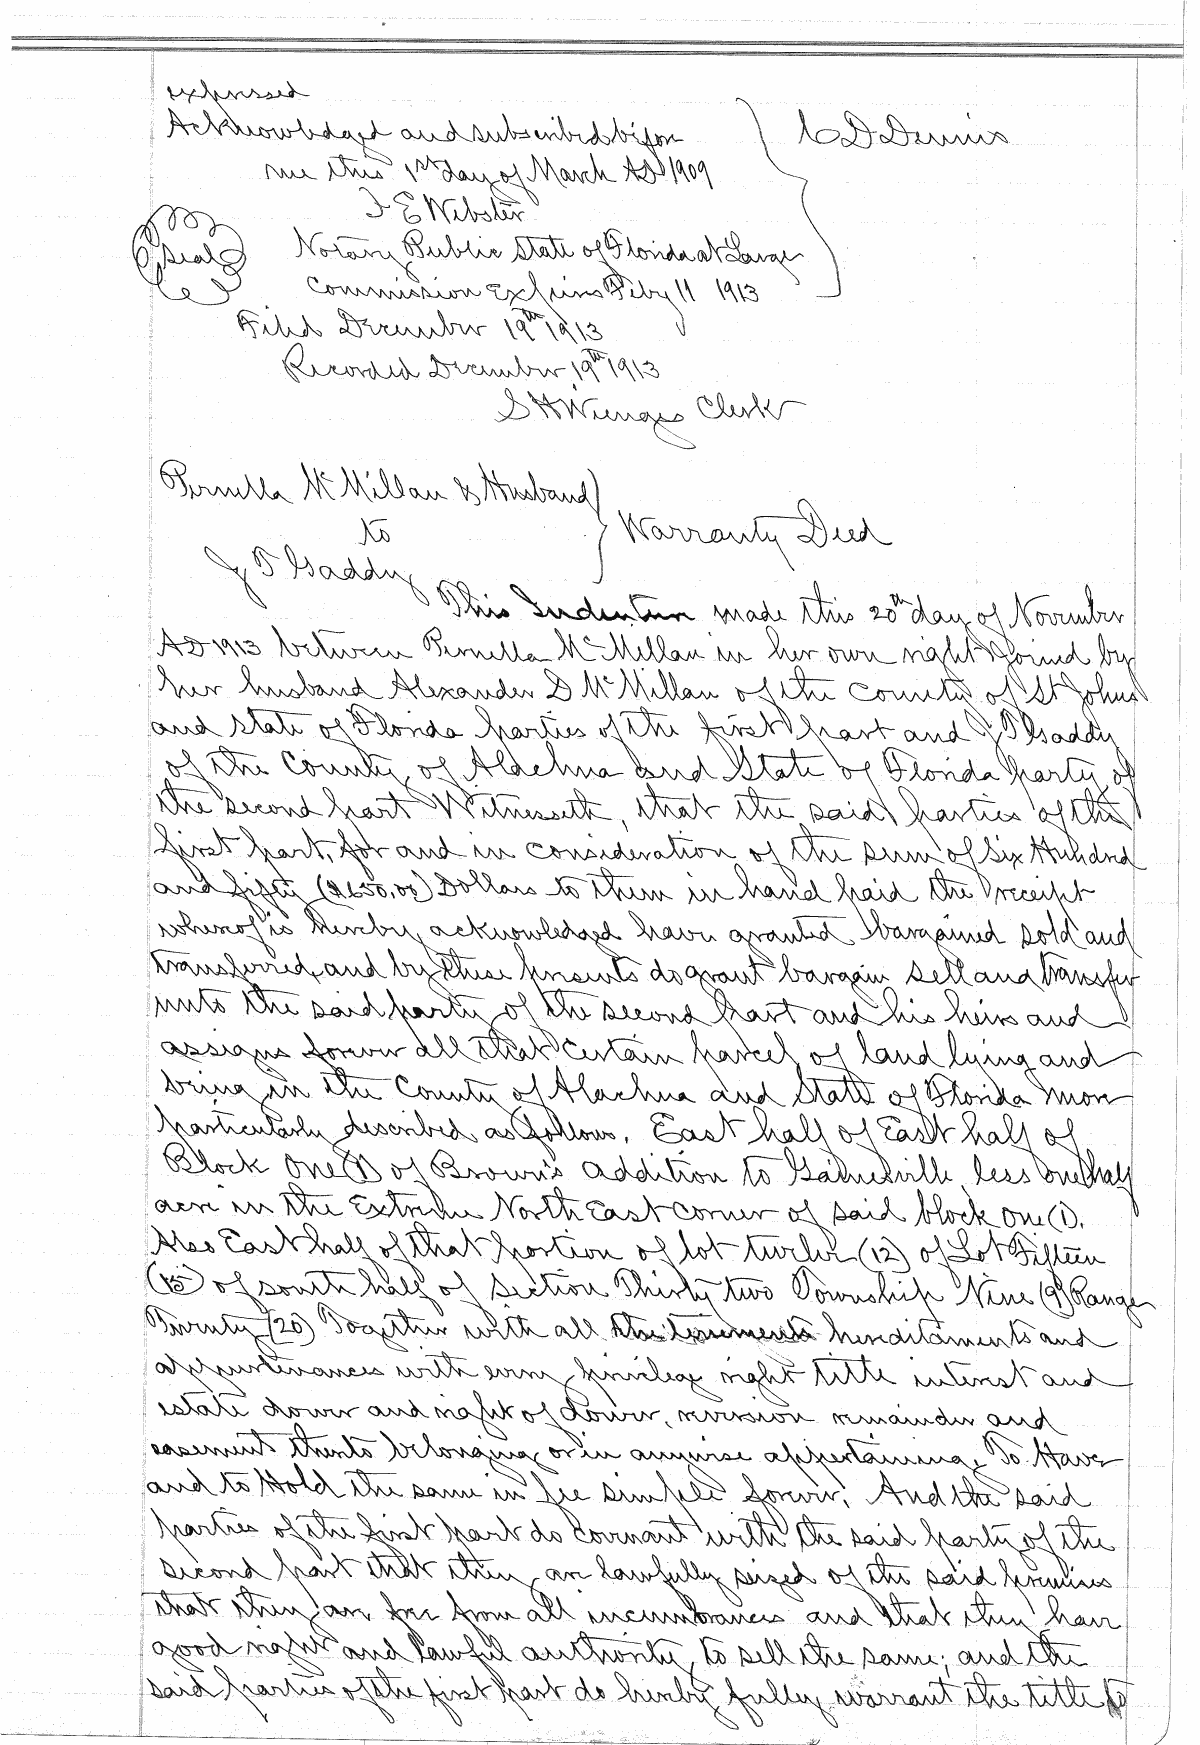 expressed
Acknowledged and subscribed before
me this 1st day of March AD 1909
C D Dennis
F E Webster
Seal
Notary Public State of Florida at Large
Commission Expires Feby 11 1913
Filed December 19th 1913
Recorded December 19th 1913
S H Wienges Clerk
Pernella McMillan & Husband
to
J T Gaddy
Warranty Deed
This Indenture made this 20th day of November
AD 1913 between Pernella McMillan in her own right & joined by
her husband Alexander D McMillan of the County of St Johns
and State of Florida parties of the first part and J T Gaddy
of the County of Alachua and State of Florida party of
the second part Witnesseth, that the said parties of the
first part, for and in consideration of the sum of Six Hundred
and fifty ($650.00) Dollars to them in hand paid the receipt
whereof is hereby acknowledged have granted bargained sold and
transferred, and by these presents do grant bargain sell and transfer
unto the said party of the second part and his heirs and
assigns forever all that certain parcel of land lying and
being in the County of Alachua and State of Florida more
particularly described as follows, East half of East half of
Block One (1) of Brown's addition to Gainesville, less one half
acre in the Extreme North East corner of said block one (1).
Also East half of that portion of lot twelve (12) of Lot Fifteen
(15) of south half of section Thirty two Township Nine (9) Range
Twenty (20) Together with all the tenements hereditaments and
appurtenances with every privilege right title interest and
estate dower and right of dower, reversion remainder and
easement thereto belonging or in anywise appertaining, To Have
and to Hold the same in fee simple forever, And the said
parties of the first part do covenant with the said party of the
second part that they are lawfully seized of the said premises
that they are free from all incumbrances and that they have
good right and lawful authority to sell the same; and the
said parties of the first part do hereby fully warrant the title to